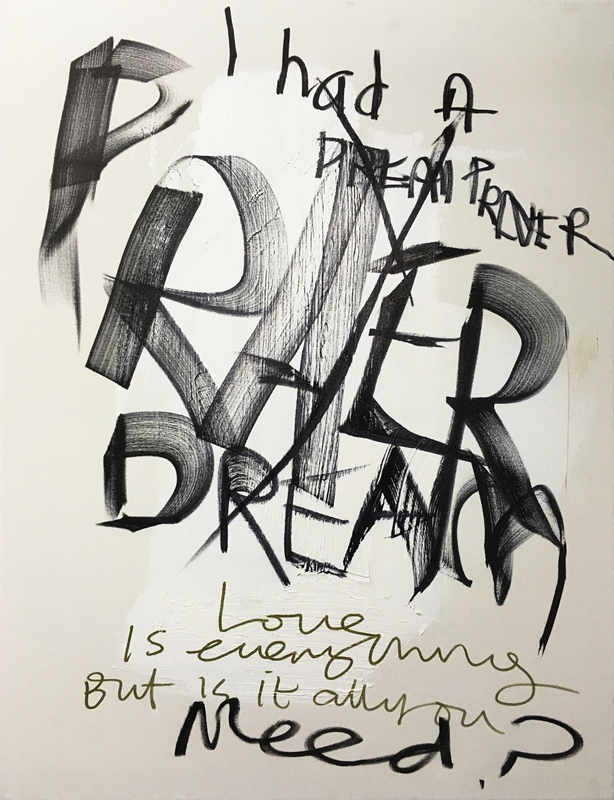 I had A
DREAM PRAYER
PRAYER
DREAM
Love
Is everything
But is it all you
Need.?